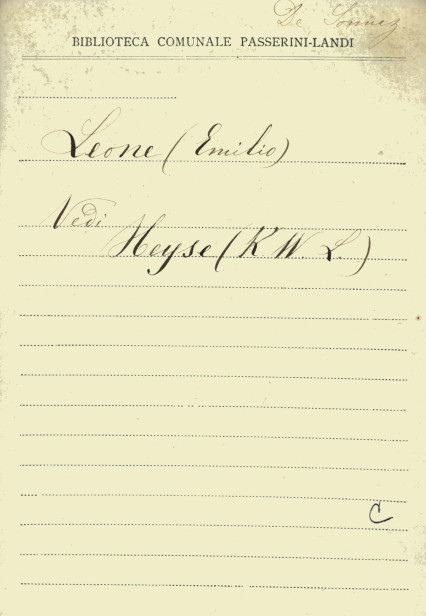 BIBLIOTECA COMUNALE PASSERINI-LANDI
Leone (Emilio)
Vedi
Heyse (K W. L.)
C